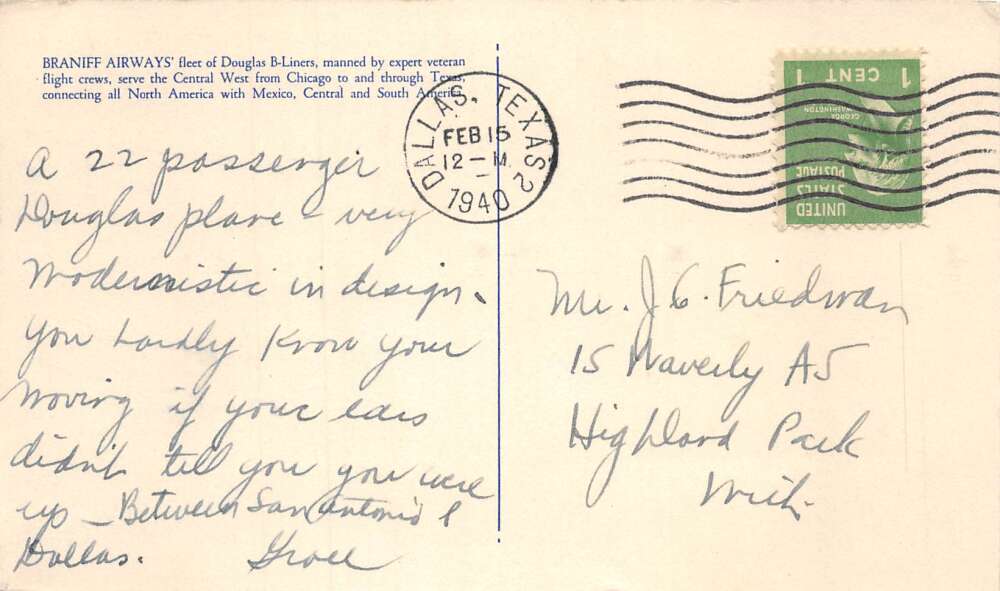 BRANIFF AIRWAYS' fleet of Douglas B-Liners, manned by expert veteran
flight crews, serve the Central West from Chicago to and through Texas,
connecting all North America with Mexico, Central and South America.
A 22 passenger
Douglas plane - very
modernistic in design.
You hardly know your
moving if your ears
didn't tell you you were
up - Between San Antonio &
Dallas. Grace
DALLAS, TEXAS 2
FEB 15
12 - M.
1940
1 CENT 1
GEORGE
WASHINGTON
UNITED
STATES
POSTAGE
Mr. J. G. Friedman
15 Waverly A5
Highland Park
Mich.